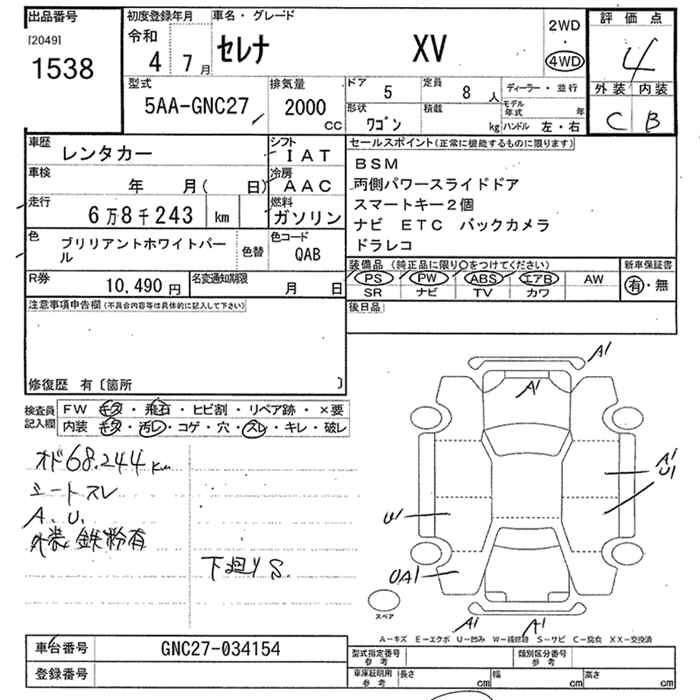 出品番号
[2049]
1538
初度登録年月
令和
4 7月
車名・グレード
セレナ XV
2WD
・
4WD
評価点
4
外装 内装
C B
型式
5AA-GNC27
排気量
2000
cc
ドア
5
定員
8 人
ディーラー・並行
形状
ワゴン
積載
kg
モデル年式 年
ハンドル 左・右
車歴
レンタカー
シフト
IAT
車検
年 月( 日)
冷房
AAC
走行
6万8千243 km
燃料
ガソリン
色
ブリリアントホワイトパール
色替
色コード
QAB
R券
10,490円
名変通知期限
月 日
セールスポイント(正常に機能するものに限ります)
BSM
両側パワースライドドア
スマートキー2個
ナビ ETC バックカメラ
ドラレコ
装備品(純正品に限り○をつけてください)
PS PW ABS エアB AW
SR ナビ TV カワ
新車保証書
有・無
後日品
注意事項申告欄(不具合内容等は具体的に記入して下さい)
修復歴 有〔箇所 〕
検査員記入欄
FW キズ・飛石・ヒビ割・リペア跡・×要
内装 キズ・汚レ・コゲ・穴・スレ・キレ・破レ
オド68.244km
シートスレ
A.U.
外装鉄粉有
下廻りS.
A1
A1
A1
U1
U1
UA1
A1
A1
スペア
A−キズ E−エクボ U−凹み W−補修跡 S−サビ C−腐食 XX−交換済
車台番号
GNC27-034154
登録番号
型式指定番号
参考
類別区分番号
参考
車庫証明用
参考
長さ cm
幅 cm
高さ cm